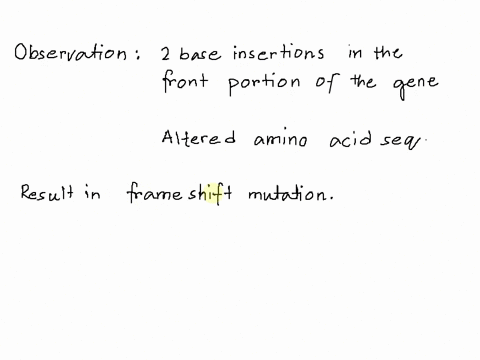 Observation: 2 base insertions in the
front portion of the gene
Altered amino acid seq.
Result in frame shift mutation.